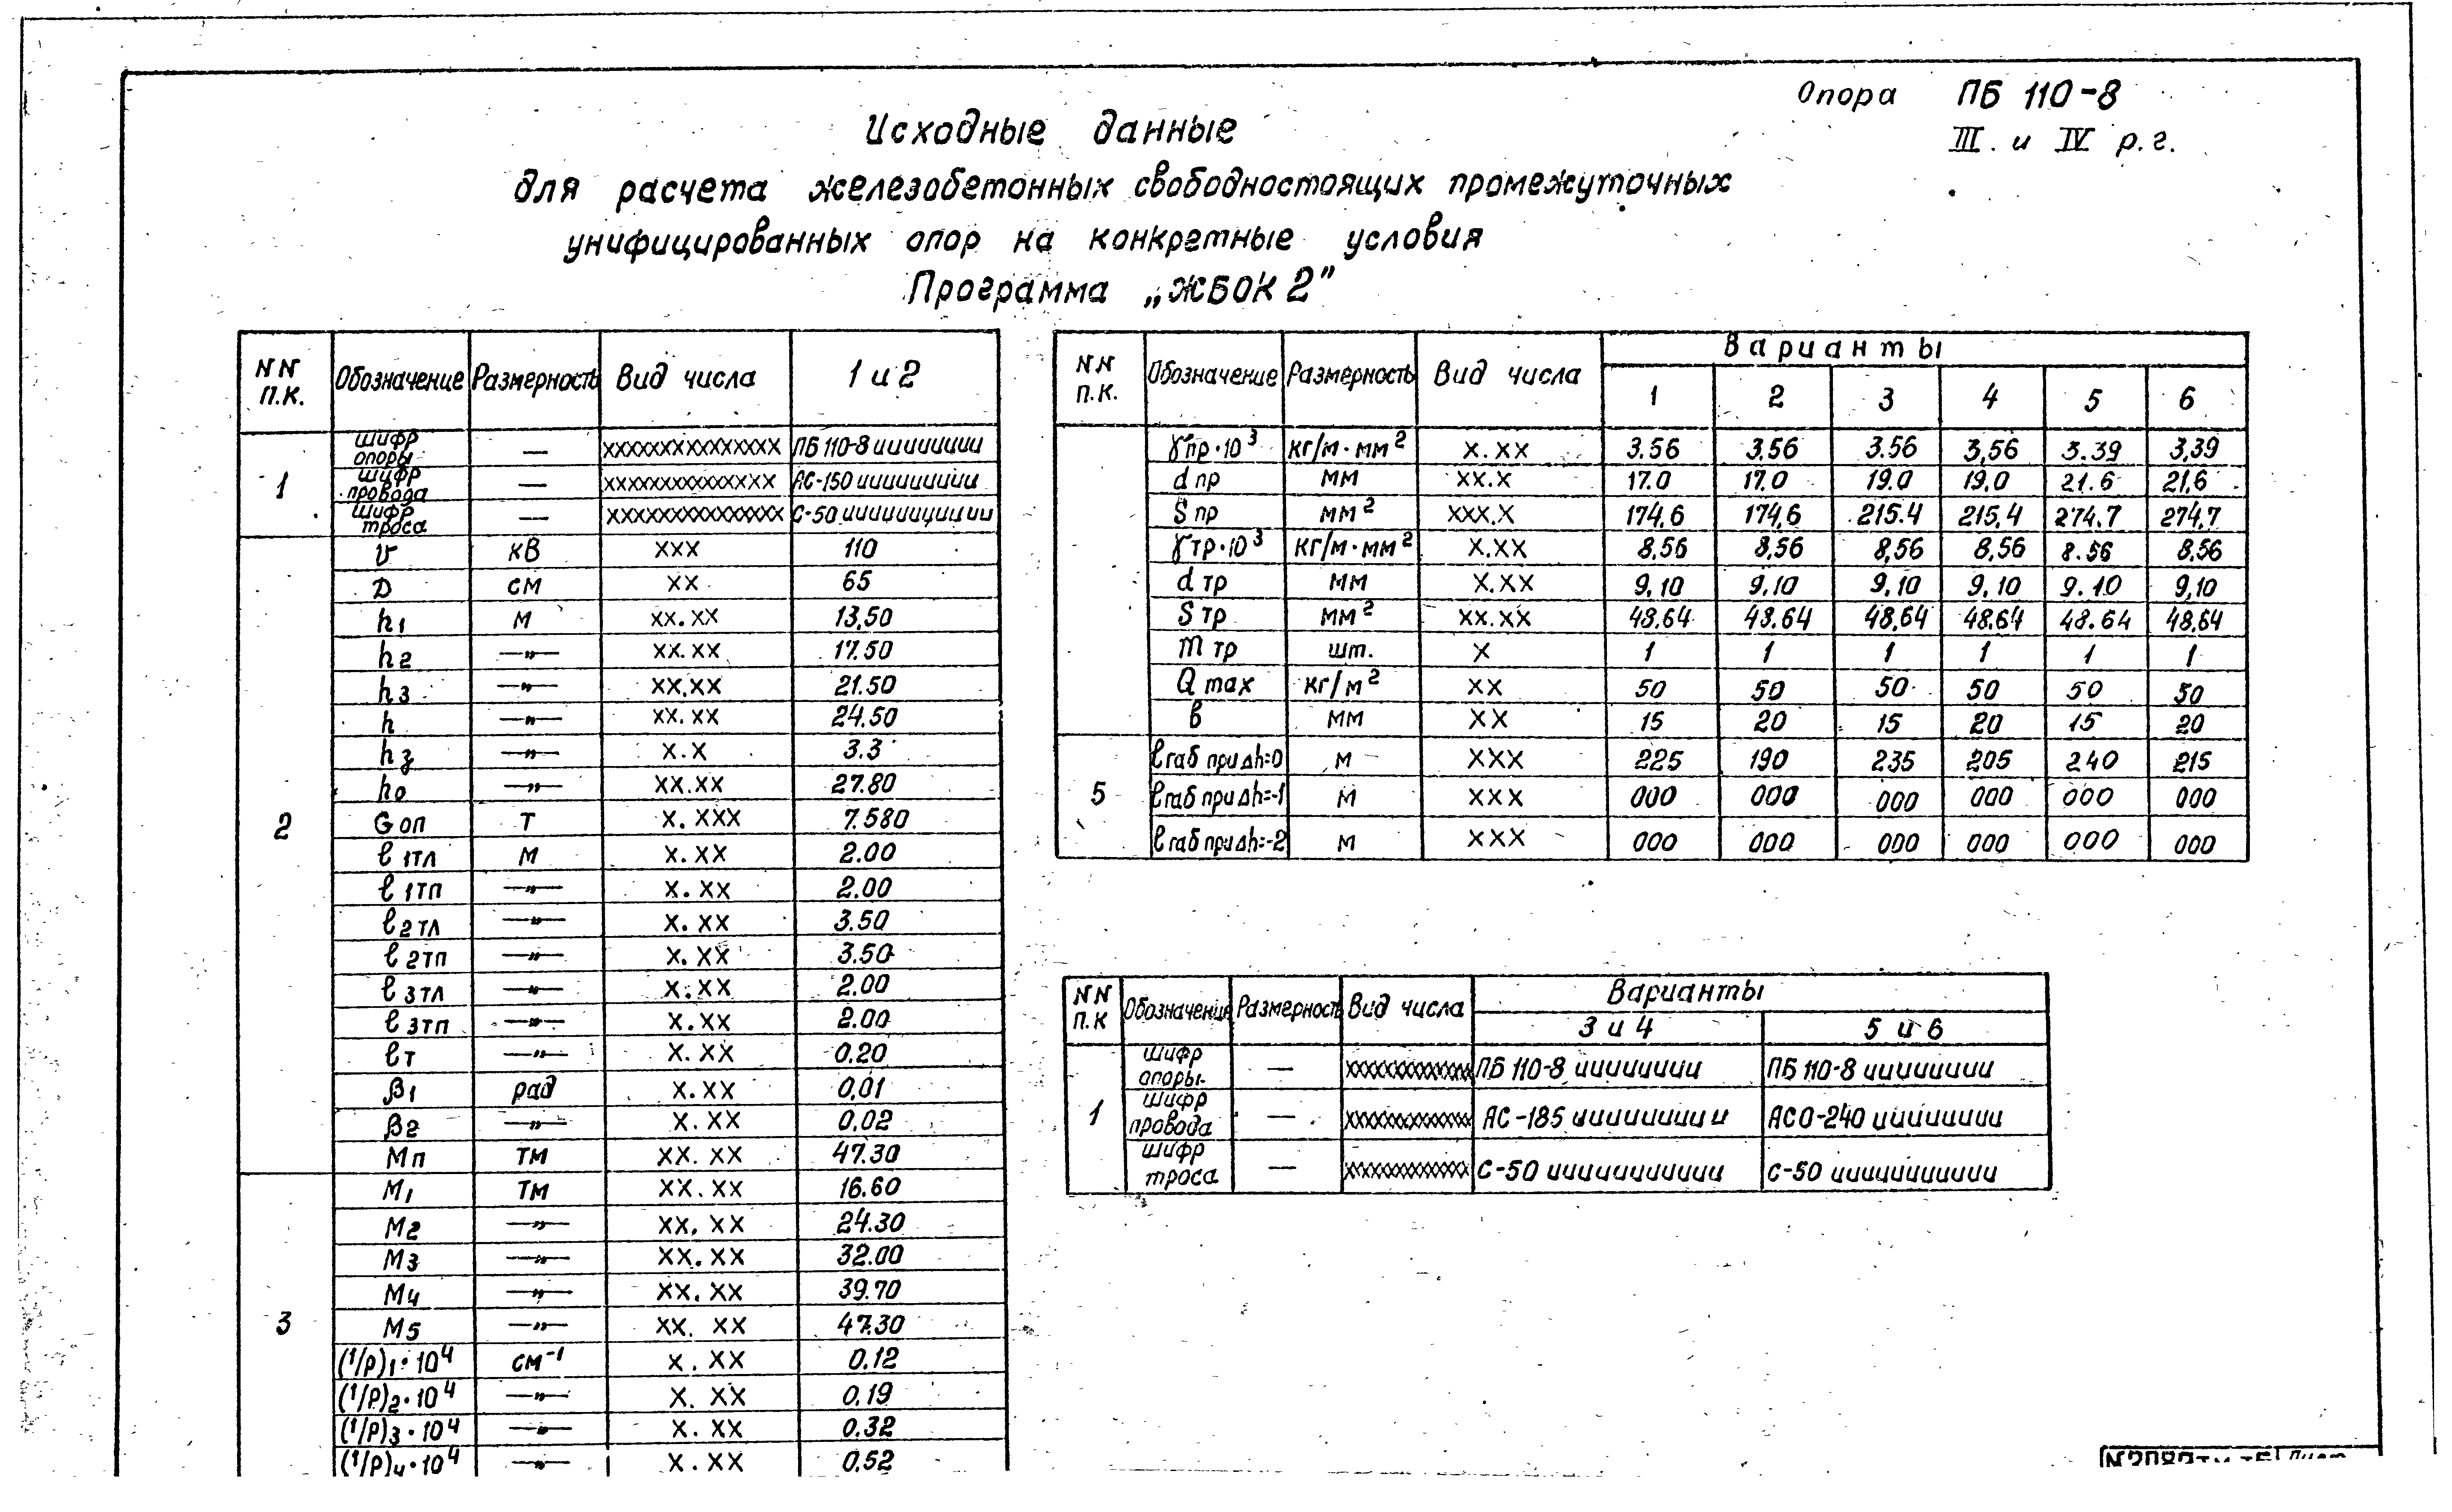 Опора ПБ 110-8
III. и IV р.г.
Исходные данные
для расчета железобетонных свободностоящих промежуточных
унифицированных опор на конкретные условия
Программа „ЖБОК 2"
NN п.к. Обозначение Размерность Вид числа 1 и 2
1 шифр опоры — xxxxxxxxxxxxxx ПБ 110-8 ииииииии
шифр провода — xxxxxxxxxxxxxx АС-150 иииииииии
шифр троса — xxxxxxxxxxxxxx С-50 иииииииииии
2 v кВ xxx 110
D см xx 65
h1 м xx.xx 13,50
h2 —"— xx.xx 17.50
h3 —"— xx,xx 21.50
h —"— xx.xx 24.50
hз —"— x.x 3.3
h0 —"— xx.xx 27.80
Gоп Т x.xxx 7.580
ℓ1тл м x.xx 2.00
ℓ1тп —"— x.xx 2.00
ℓ2тл —"— x.xx 3.50
ℓ2тп —"— x.xx 3.50
ℓ3тл —"— x.xx 2.00
ℓ3тп —"— x.xx 2.00
ℓт —"— x.xx 0.20
β1 рад x.xx 0,01
β2 —"— x.xx 0,02
Мп ТМ xx.xx 47.30
3 М1 ТМ xx.xx 16.60
М2 —"— xx.xx 24.30
М3 —"— xx.xx 32.00
М4 —"— xx.xx 39.70
М5 —"— xx.xx 47.30
(1/ρ)1·10⁴ см⁻¹ x.xx 0.12
(1/ρ)2·10⁴ —"— x.xx 0,19
(1/ρ)3·10⁴ —"— x.xx 0.32
(1/ρ)4·10⁴ —"— x.xx 0.52
NN п.к. Обозначение Размерность Вид числа Варианты
1 2 3 4 5 6
γпр·10³ кг/м·мм² x.xx 3.56 3.56 3.56 3,56 3.39 3,39
dпр мм xx.x 17.0 17.0 19.0 19,0 21.6 21,6
Sпр мм² xxx.x 174,6 174,6 215.4 215,4 274.7 274,7
γтр·10³ кг/м·мм² x.xx 8,56 8,56 8,56 8,56 8.56 8,56
dтр мм x.xx 9,10 9.10 9,10 9,10 9.10 9,10
Sтр мм² xx.xx 48.64 48.64 48,64 48.64 48.64 48,64
mтр шт. x 1 1 1 1 1 1
Qmax кг/м² xx 50 50 50 50 50 50
в мм xx 15 20 15 20 15 20
5 ℓгаб при Δh=0 м xxx 225 190 235 205 240 215
ℓгаб при Δh=-1 м xxx 000 000 000 000 000 000
ℓгаб при Δh=-2 м xxx 000 000 000 000 000 000
NN п.к Обозначение Размерность Вид числа Варианты
3 и 4 5 и 6
1 шифр опоры — xxxxxxxxxxxxxx ПБ 110-8 ииииииии ПБ 110-8 ииииииии
шифр провода — xxxxxxxxxxxxxx АС-185 иииииииии АСО-240 ииииииии
шифр троса — xxxxxxxxxxxxxx С-50 иииииииииии С-50 иииииииииии
Лист